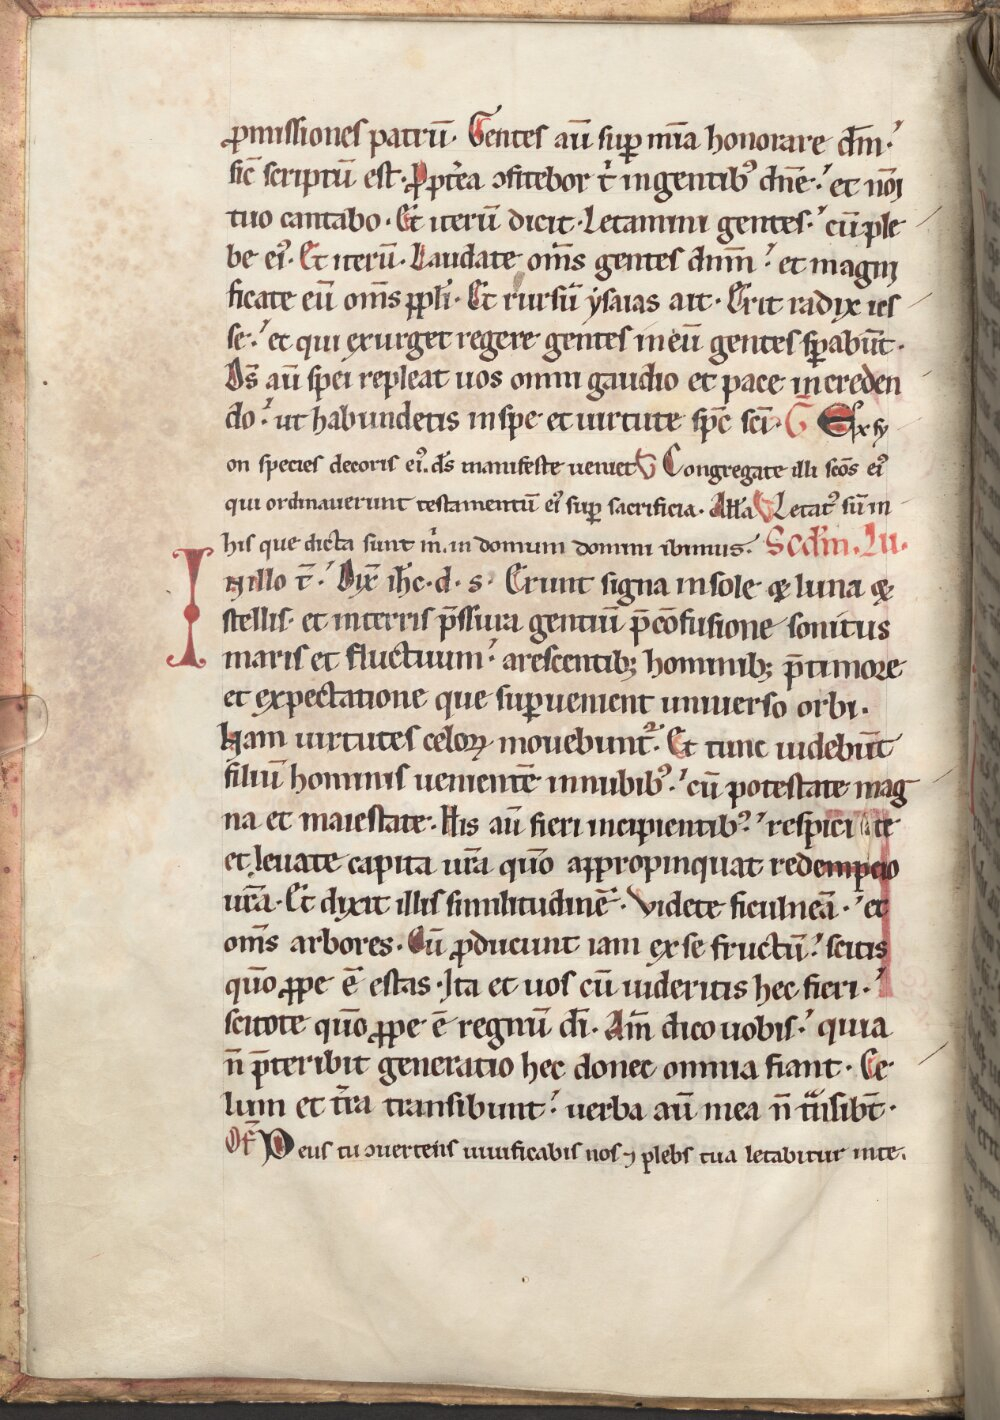 ꝓmissiones patrū. Gentes aū suꝑ mīa honorare dm̄.
sic̄ scriptū est. Ꝓpt̄ea ɔfitebor t̄ in gentib᷒ dn̄e. et nōi
tuo cantabo. Et iterū dicit. Letamini gentes. cū ple
be ei᷒. Et iterū. Laudate om̄s gentes dnm̄. et magni
ficate eū om̄s ppl̄i. Et rursū ysaias ait. Erit radix ies
se. et qui exurget regere gentes in eū gentes sꝑabūt.
Ds̄ aū spei repleat uos omni gaudio et pace in creden
do. ut habundetis in spe et uirtute sp̄c sc̄i. Ḡ Ex sy
on species decoris ei᷒. ds̄ manifeste ueniet V Congregate illi sc̄os ei᷒
qui ordinauerunt testamentū ei᷒ suꝑ sacrificia. All̄a V Letat᷒ sū in
his que dicta sunt m̄. in domum domini ibimus. Scdm̄. Lu.
In illo t̄. Dix̄ ih̄c. d. s. Erunt signa in sole ⁊ luna ⁊
stellis. et in terris p̄ssura gentiū p̄ cōfusione sonitus
maris et fluctuum. arescentibꝫ hominibꝫ p̄ timore
et expectatione que suꝑuenient uniuerso orbi.
Nam uirtutes celoꝝ mouebunt᷒. Et tunc uidebūt
filiū hominis uenientē in nubib᷒. cū potestate mag
na et maiestate. His aū fieri incipientib᷒. respici ate
et leuate capita ur̄a quō appropinquat redempcio
ur̄a. Et dixit illis similitudinē. Videte ficulneā. et
om̄s arbores. Cū ꝓducunt iam ex se fructū. scitis
quō ꝓpe ē estas. Ita et uos cū uideritis hec fieri.
scitote quō ꝓpe ē regnū di̅. Am̄ dico uobis. quia
n̄ p̄teribit generatio hec donec omnia fiant. Ce
lum et t̄ra transibunt. uerba aū mea n̄ tn̄sibt̄.
Of̄ Deus tu ɔuertens uiuificabis nos ⁊ plebs tua letabitur in te.